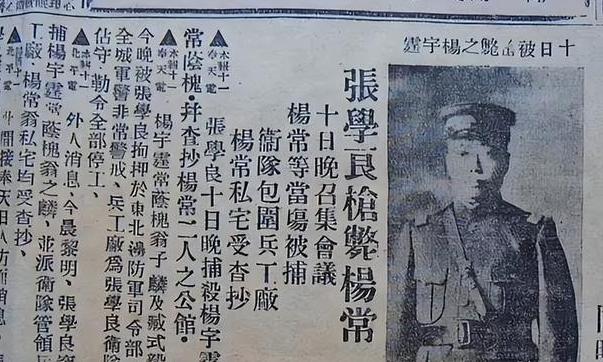 十日被槍斃之楊宇霆
張學良槍斃楊常
十日晚召集會議
楊常等當場被捕
衛隊包圍兵工廠
楊常私宅受查抄
張學良十日晚捕殺楊宇霆
常蔭槐・幷查抄楊常二人之公館・
▲本報十一奉天電 楊宇霆常蔭槐翁子麟及臧式毅
今晚被張學良拘押於東北邊防軍司令部
全城軍警非常警戒、兵工廠爲張學良衛隊
佔守、勒令全部停工、
▲北平電 外人消息、今晨黎明、張學良
捕楊宇霆常蔭槐翁之麟、並派衛隊管領兵
工廠、楊常翁私宅均受查抄、